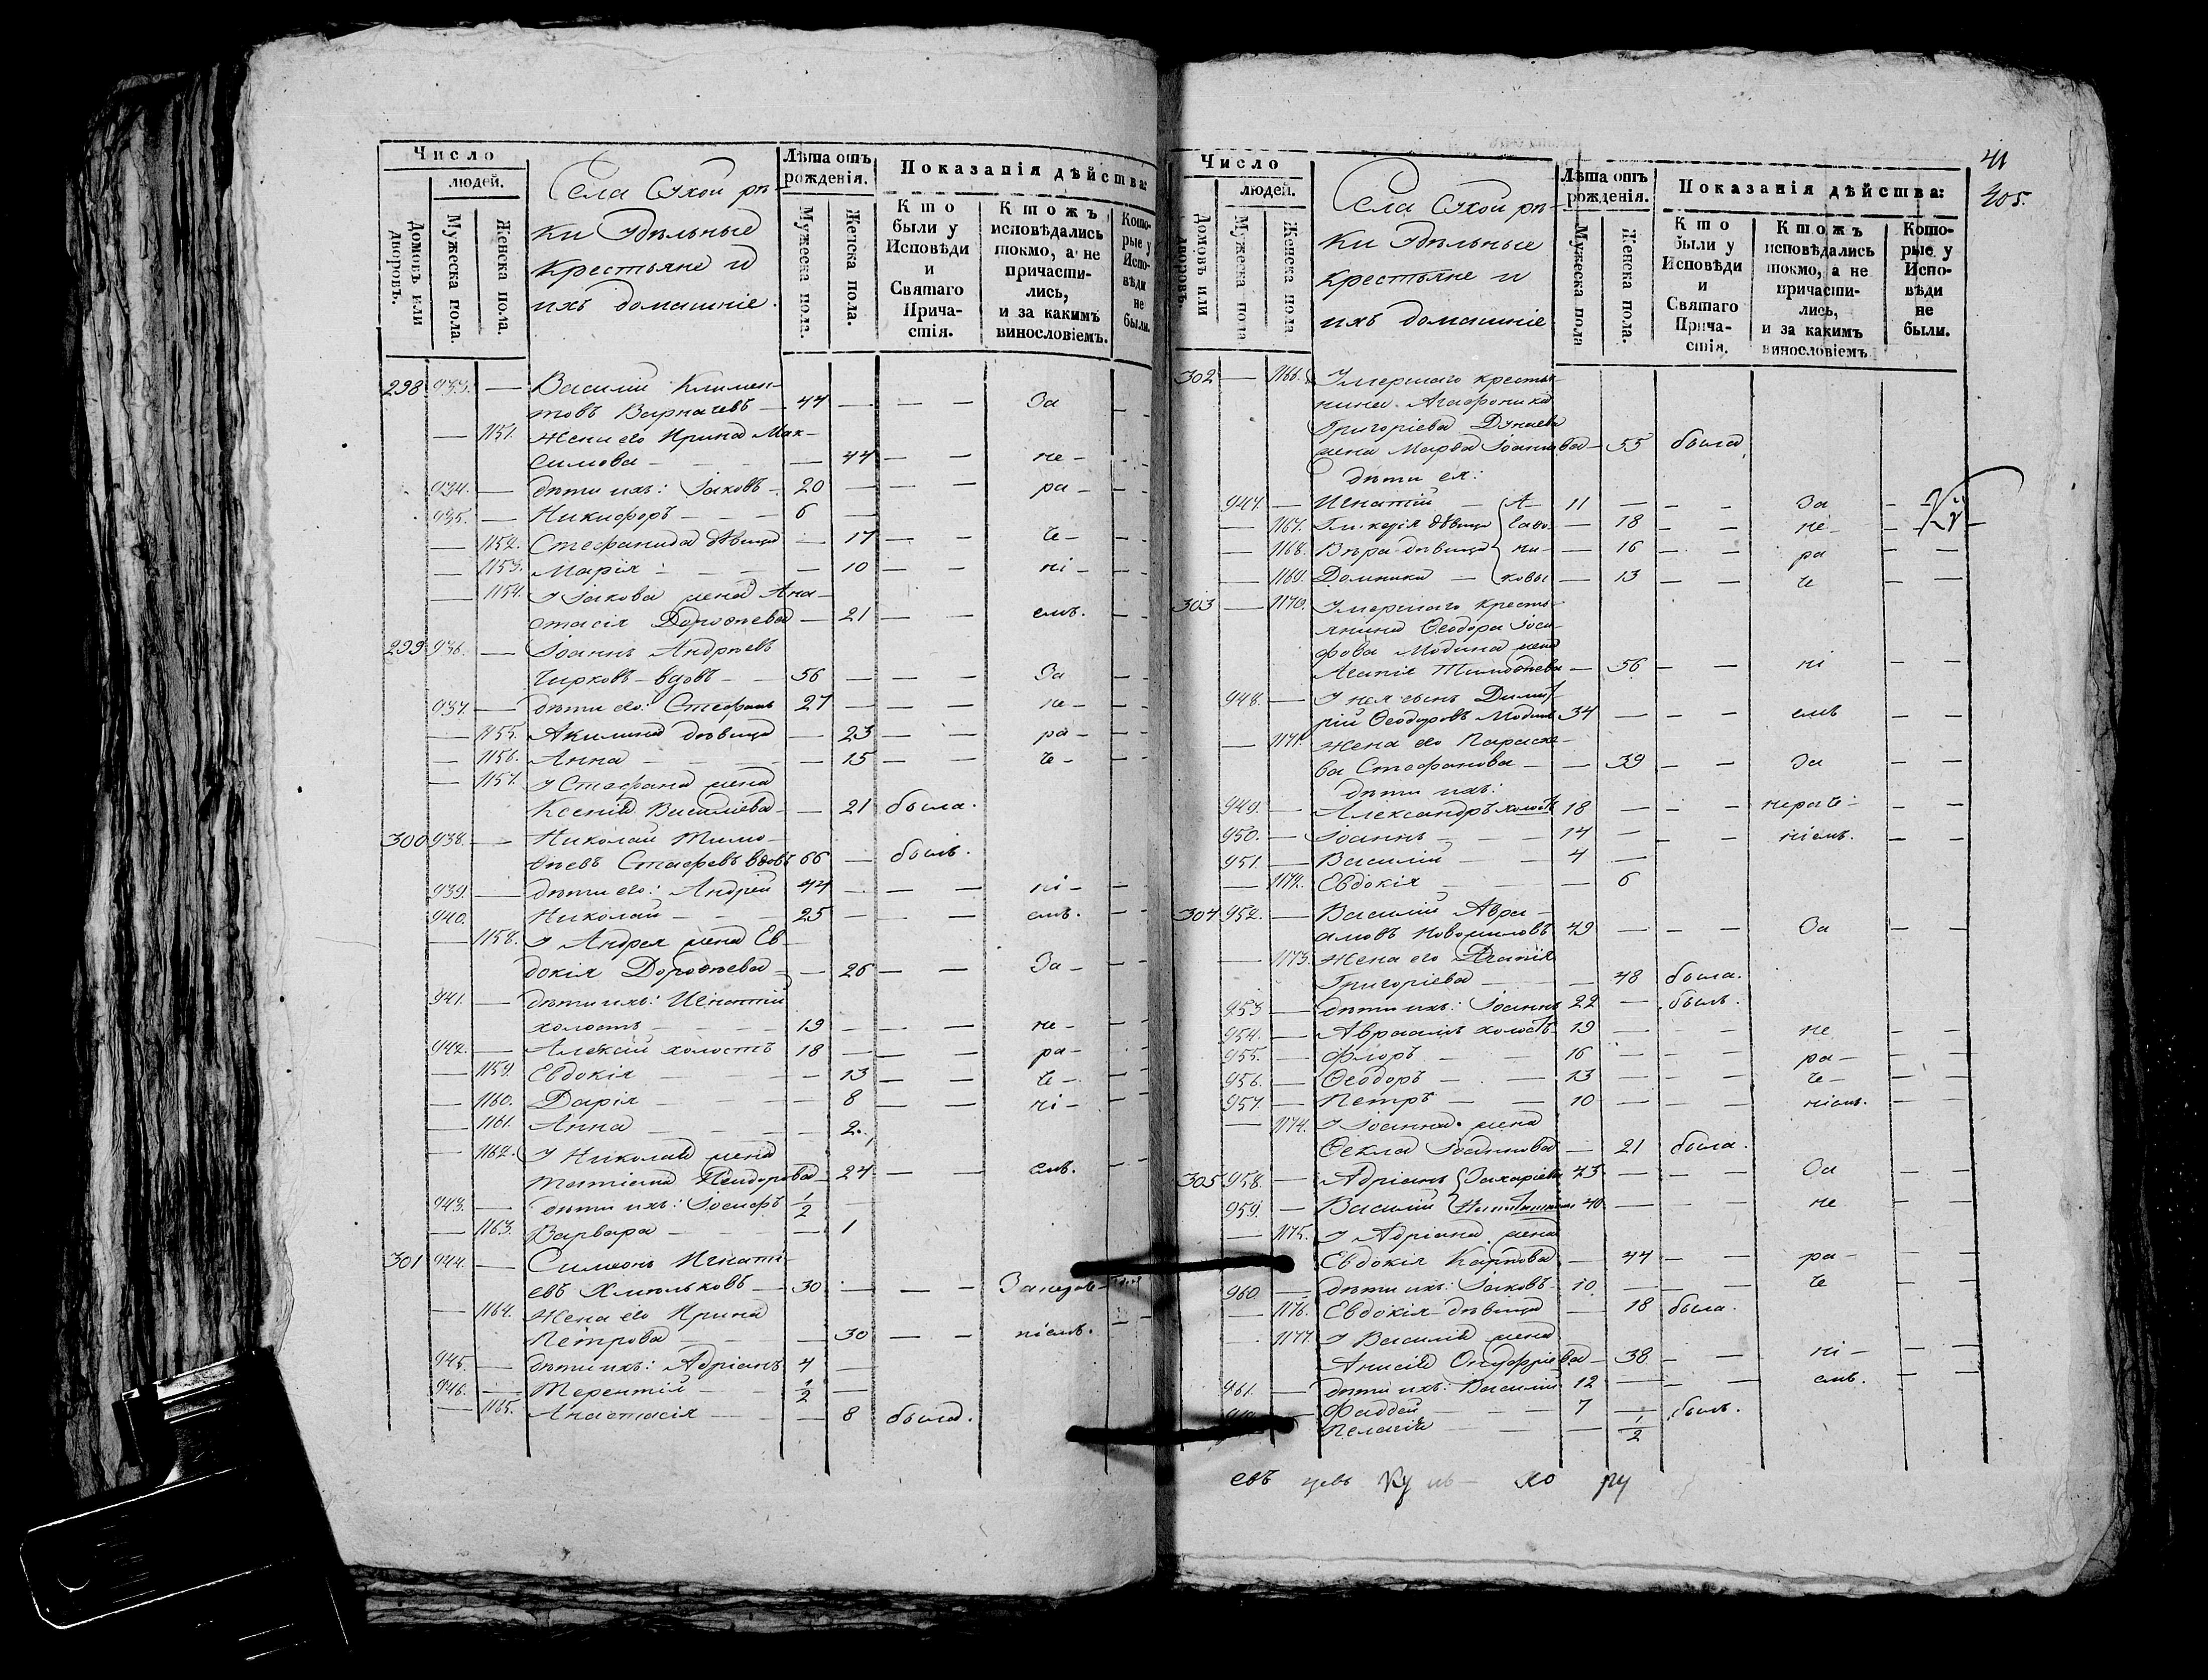 Число
людей.
Домовъ или дворовъ.
Мужеска пола.
Женска пола.
Села Сухой рѣ-
ки Удѣльные
Крестьяне и
ихъ домашніе.
Лѣта отъ рожденія.
Мужеска пола.
Женска пола.
Показанія дѣйства:
Кто были у Исповѣди и Святаго Причастія.
Ктожъ исповѣдались токмо, а не причастились, и за какимъ винословіемъ.
Которые у Исповѣди не были.
298 933. — Василій Климен-
товъ Варначевъ — 44 — — — За
— 1151. Жена его Ирина Мак-
симова — — 44 — — не-
934. — дѣти ихъ: Іаковъ — 20 — — — ра-
935. — Никифоръ — — 6 —
— 1152. Стефанида дѣвица — 17 — — че-
— 1153. Марія — — — 10 — — ні-
— 1154. У Іакова жена Ана-
стасія Дороѳеева — 21 — — емъ.
299 936. — Іоаннъ Андреевъ
Чирковъ — вдовъ — 56 — — — За
937. — дѣти его: Стефанъ 27 — — — не-
— 1155. Акилина дѣвица — 23 — — ра-
— 1156. Анна — — — 15 — — че-
— 1157. У Стефана жена
Ксенія Василіева — — 21 была.
300 938. — Николай Тимо-
ѳеевъ Стафеевъ вдовъ 66 — былъ.
939. — дѣти его: Андрей 44 — — — ні-
940. Николай — — 25 — — — емъ.
— 1158. У Андрея жена Ев-
докія Дороѳеева — — 26 — — За-
941. — дѣти ихъ: Игнатій
холостъ — — — 19 — — — не-
942. — Алексій холостъ 18 — — — ра-
— 1159. Евдокія — — — 13 — — че-
— 1160. Дарія — — — 8 — — ні-
— 1161. Анна — — — 2.
— 1162. У Николая жена
Татіана Ѳеодорова — 24 — — емъ.
943. — дѣти ихъ: Іосифъ 1/2 —
— 1163. Варвара — — — 1
301 944. — Симеонъ Игнаті-
евъ Хмыльковъ — 30 — — —
— 1164. Жена его Ирина
Петрова — — — 30 — — ніемъ.
945. — дѣти ихъ: Адріанъ 4 —
946. — Терентій — — 1/2 —
— 1165. Анастасія — — — 8 была.
41
405.
Число
людей.
Домовъ или дворовъ.
Мужеска пола
Женска пола
Села Сухой рѣ-
ки Удѣльные
крестьяне и
ихъ домашніе
Лѣта отъ рожденія.
Мужеска пола
Женска пола.
Показанія дѣйства:
Кто были у Исповѣди и Святаго Причастія.
Ктожъ исповѣдались токмо, а не причастились, и за какимъ винословіемъ
Которые у Исповѣди не были.
302 — 1166. Умершаго крестья-
нина Агафоника
Григоріева Дунаева
жена Марѳа Іоаннова — 55 была
дѣти ея:
947. — Игнатій — А- 11 — — — За — —
— 1167. Гликерія дѣвица гафо- — 18 — — не-
— 1168. Вѣра дѣвица ни- — 16 — — ра — —
— 1169. Домника — ковы — 13 — — че — —
303 — 1170. Умершаго кресть-
янина Ѳеодора Іоси-
фова Модина жена
Агапія Тимоѳеева — 56 — — ні — —
948. — У нея сынъ Дими-
рій Ѳеодоровъ Модинъ 34 — — — емъ — —
— 1171. Жена его Параске-
ва Стефанова — — 39 — — За — —
дѣти ихъ:
949. — Александръ холостъ 18 — — — нераче- — —
950. — Іоаннъ — — 14 — — — ніемъ. — —
951. — Василій — — 4 —
— 1172. Евдокія — — — 6
304 952. — Василій Авра-
амовъ Новомиловъ 49 — — — За — —
— 1173. Жена его Агапія
Григоріева — — — 48 была.
953 — дѣти ихъ: Іоаннъ 22 — былъ.
954. — Авраамъ холостъ 19 — — — не — —
955. — Флоръ — — 16 — — — ра- — —
956. — Ѳеодоръ — — 13 — — — че- — —
957. — Петръ — — 10 — — — ніемъ. — —
— 1174. У Іоанна жена
Ѳекла Іоаннова — 21 была.
305 958. — Адріанъ Захаріевы 43 — — — За — —
959. — Василій 40 — — — не — —
— 1175. У Адріана жена
Евдокія Карпова — 44 — — ра- — —
960 — дѣти ихъ: Іаковъ 10 — — — че — —
— 1176. Евдокія дѣвица — 18 была.
— 1177. У Василія жена
Анисія Онуфріева — 38 — — ні- — —
961. — дѣти ихъ: Василій 12 — — — емъ. — —
— Фаддей — — 7 — былъ.
Пелагія — — — 1/2
евъ